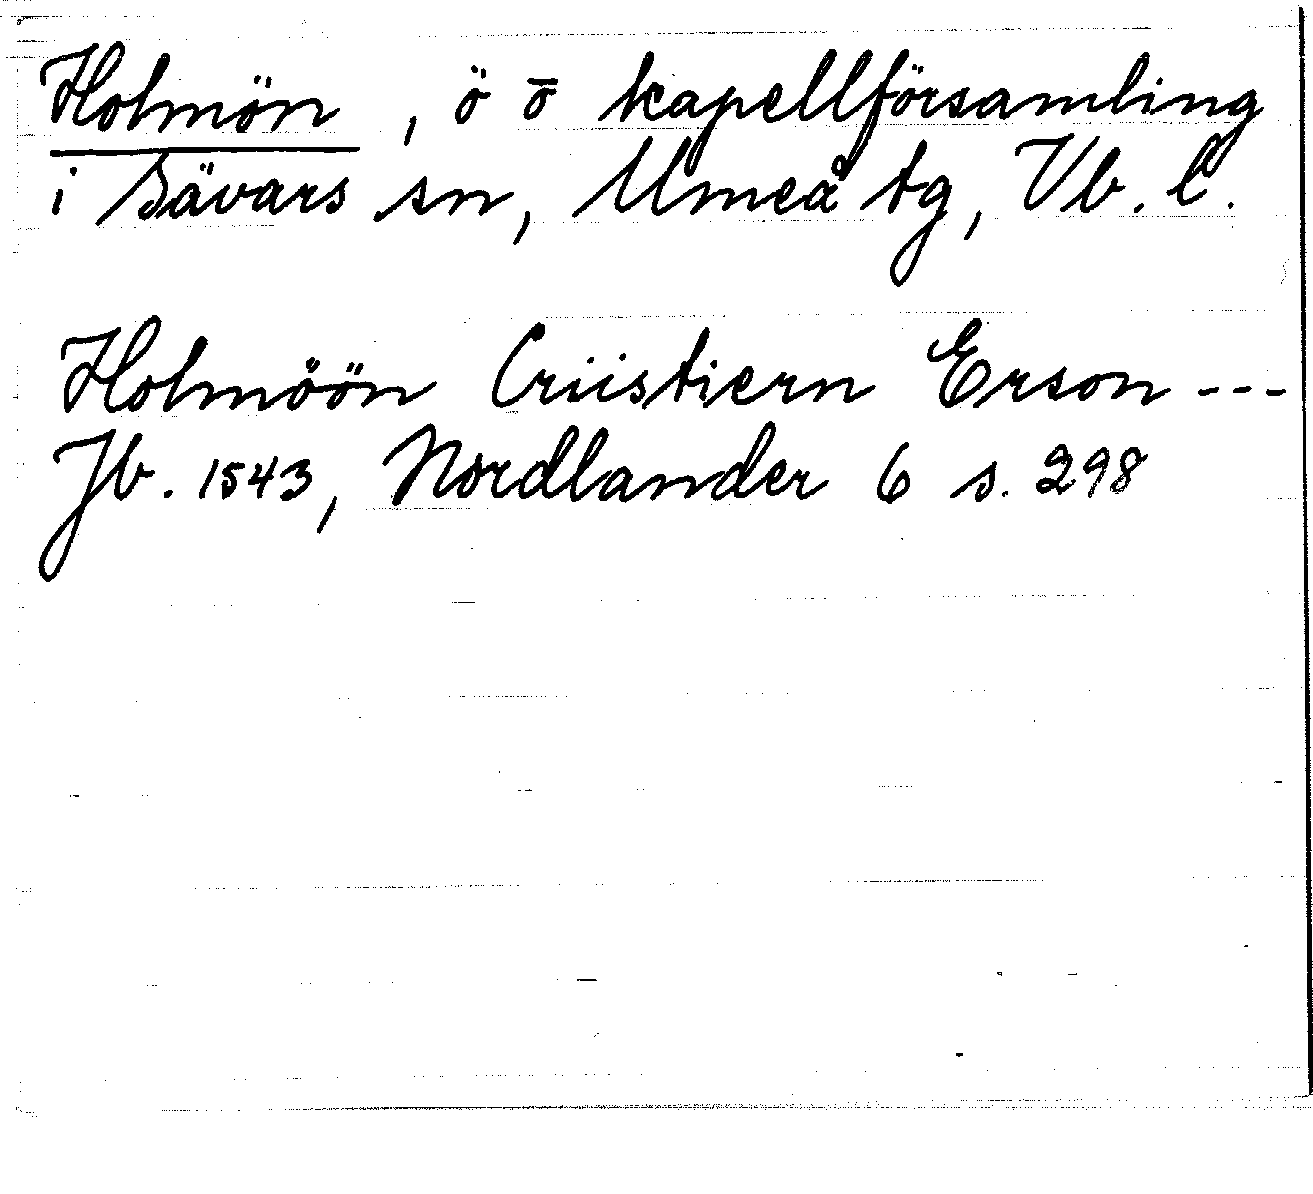 Holmön, ö o kapellförsamling
i Sävars sn, Umeå tg, Vb. l.
Holmöön Criistiern Erson ---
Jb. 1543, Nordlander 6 s. 298